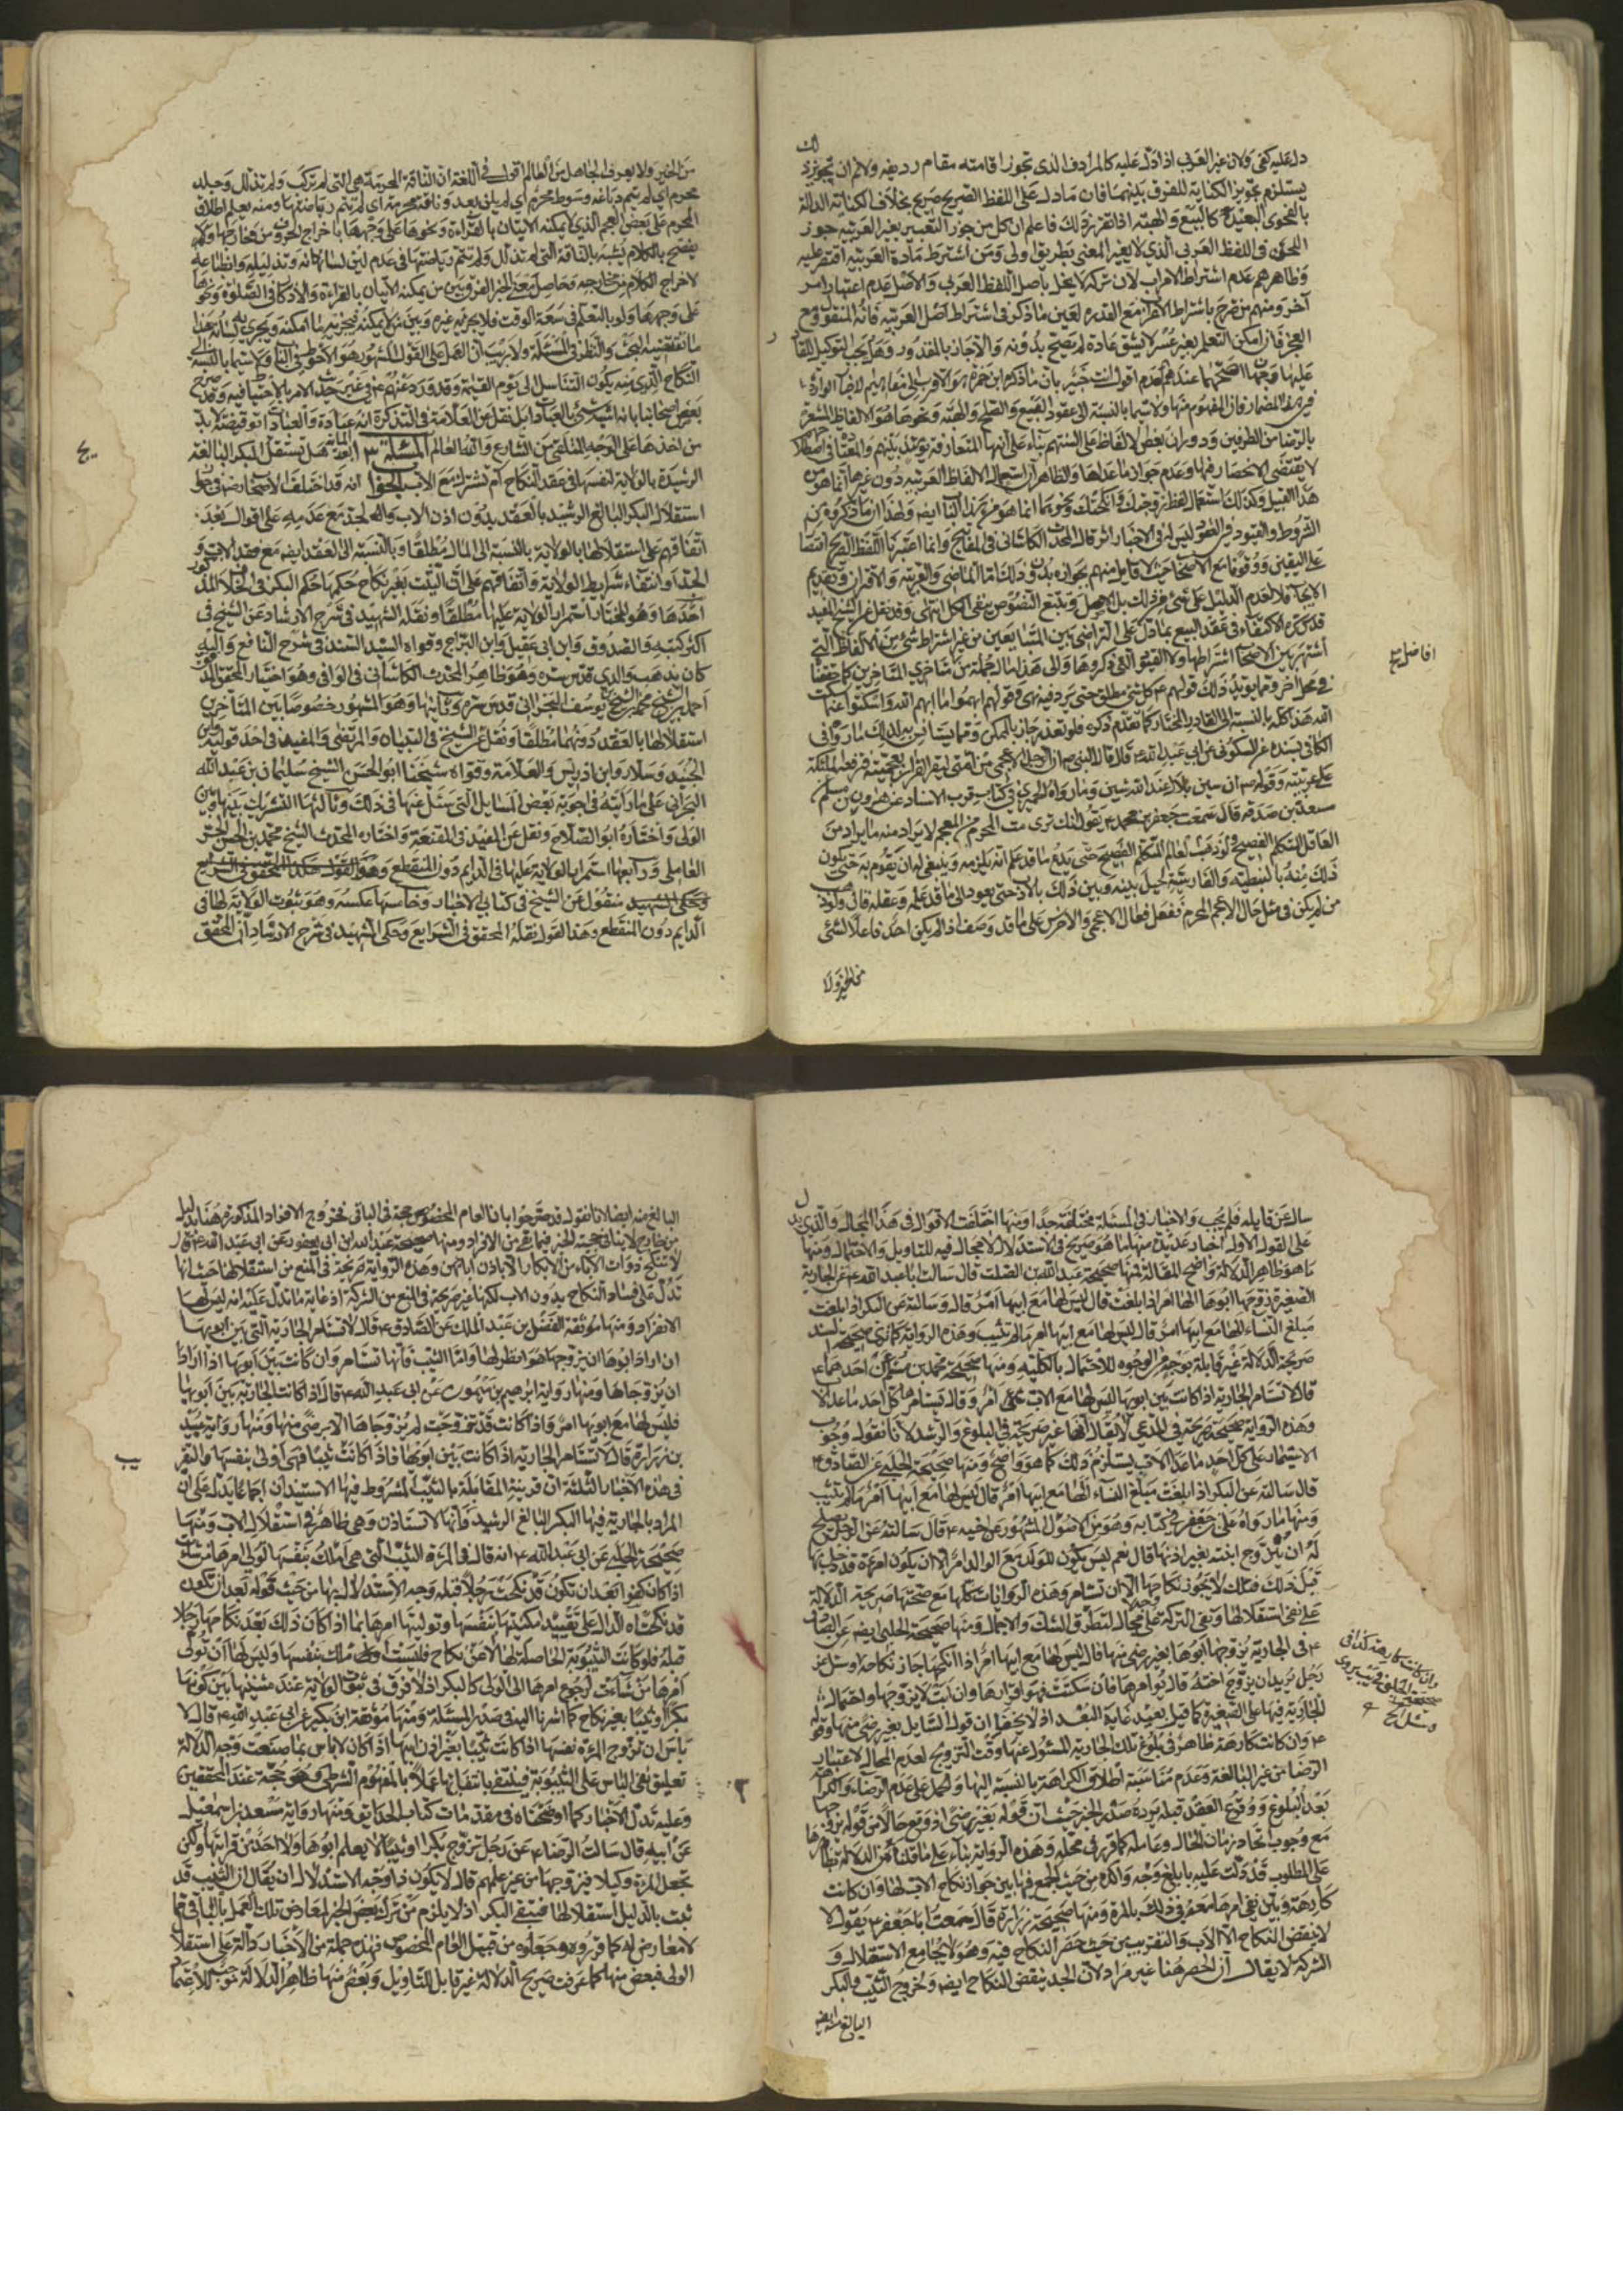 دل عليه كفى ولان غير العربى اذا دل عليه كالمرادف الذى تجوز اقامته مقام رديفه ولانم ان تجويز
يستلزم تجويز الكناية للفرق بينهما فان ما دل على اللفظ الصريح صريح بخلاف الكناية الدالة
بالفحوى البعيدة كالبيع والهبة اذا تقرر ذلك فاعلم ان كل من جوز التعبير بغير العربية جوز
اللحن فى اللفظ العربى الذى لا يغير المعنى بطريق اولى ومن اشترط مادة العربية اقتصر عليه
وظاهرهم عدم اشتراط الاعراب لان تركه لا يخل باصل اللفظ العربى والاصل عدم اعتبار امر
آخر ومنهم من صرح باشتراط الاعراب مع القدرة لعين ما ذكر فى اشتراط اصل العربية فانه المتفق مع
العجز فان امكن التعلم بغير عسر لا يشق عادة لم يصح بدونه والا جاز بالمقدور وهل يجب التوكيل للقادر
عليها وجهان اصحهما عندهم العدم اقول انت خبير بان ما ذكره ابن حمزة هو الاقرب الى مفاهيم الاخبار الواردة
فى هذا المضمار فان المفهوم منها ولا سيما بالنسبة الى عقود البيع والصلح والهبة ونحوها هو الالفاظ المشعرة
بالرضا من الطرفين ودوران بعض الالفاظ على السنتهم بناء على انها المتعارفة يومئذ بينهم
لا يقتضى الانحصار فيها وعدم جواز ما عداها والظاهر ان استعمال الالفاظ العربية دون غيرها انما هو من
هذا القبيل وكذلك استعمال لفظ زوجتك وانكحتك ونحوهما انما هو من هذا الباب ايضه ولهذا ان ما ذكروه من
الشروط والقيود فى العقود ليس له فى الاخبار اثر قال المحدث الكاشانى فى المفاتيح وانما اعتبرنا اللفظ الصريح اقتصارا
على اليقين ووقوفا مع الاصحاب حيث لا قايل منهم بجوازه بدون ذلك اما الماضى والعربية والاقتران وتقديم
الايجاب فلا لعدم الدليل على شئ من ذلك بل الاصل وتتبع النصوص ينفى الكل انتهى وقد نقل عن الشيخ المفيد
قدس سره الاكتفاء فى عقد البيع بما دل على التراضى بين المتبايعين من غير اشتراط شئ من الالفاظ التى
اشتهر بين الاصحاب اشتراطها ولا القيود التى ذكروها والى هذا مال جملة من مشايخى المتاخرين كما حققنا
فى محل آخر ومما يؤيد ذلك قولهم ع كل شئ مطلق حتى يرد فيه نهى وقولهم ابهموا ما ابهم الله واسكتوا عما سكت
الله هذا كله بالنسبة الى القادر المختار كما تقدم ذكره فلو تعذر جاز بالممكن ومما يستانس به لذلك ما رواه فى
الكافى بسنده عن السكونى عن ابى عبد الله ع قال قال النبى ص ان الرجل الاعجمى من امتى ليقرا القرآن بعجميته فترفعه الملائكة
على عربيته وقوله ص ان سين بلال عند الله شين وما رواه الحميرى فى كتاب قرب الاسناد عن هرون بن مسلم عن
مسعدة بن صدقه قال سمعت جعفر بن محمد ع يقول انك ترى من المحرم من العجم لا يراد منه ما يراد من
العالم المتكلم الفصيح
ذلك منه بالنبطية والفارسية لحيل بينه وبين ذلك بالادب حتى يعود الى ما قد علمه وعقله قال ولو ذهب
من لم يكن فى مثل حال الاعجم المحرم ففعل فعال الاعجمى والاخرس على ما قد وصفنا اذا لم يكن احد فاعلا لشئى
من الخير ولا
افاضل متع
من الخير ولا يعرف الجاهل من العالم اقول فى اللغة ان الناقة المحرمة هى التى لم تركب ولم تذلل وجلد
محرم اى لم يتم دباغه وسوط محرم اى لم يلن بعد وناقة محرمة اى لم تتم رياضتها ومنه يعلم اطلاق
المحرم على بعض العجم الذى لا يمكنه الاتيان بالقراءة ونحوها على وجهها باخراج الحروف من مخارجها ولا
يفصح بالكلام يشبه بالناقة التى لم تذلل ولم تتم رياضتها فى عدم لين لسانه وتذليله وانطباعه
لاخراج الكلام من مخارجه وحاصل معنى الخبر الفرق بين من يمكنه الاتيان بالقراءة والاذكار فى الصلوة ونحوها
على وجهها ولو بالتعلم فى سعة الوقت فلا يجزيه غيره وبين من لا يمكنه فيجزيه ما امكنه ويجرى به لسانه هذا
ما تقتضيه البحث والنظر فى المسئلة ولا ريب ان العمل على القول المشهور هو الاحوط فى الباب ولا سيما بالنسبة الى
النكاح الذى منه يكون التناسل الى يوم القيمة وقد ورد عنهم ع فى غير حديث الامر بالاحتياط فيه وقد صرح
بعض اصحابنا بانه اشبه شئ بالعبادات بل نقل عن العلامة فى التذكرة انه عبادة والعبادات توقيفية لا بد
من اخذها على الوجه المتلقى من الشارع والله العالم المسئلة الرابعة هل تستقل البكر البالغة
الرشيدة بالولاية لنفسها فى عقد النكاح ام تشترك مع الاب الجواب انه قد اختلف الاصحاب رض فى
استقلال البكر البالغ الرشيد بالعقد بدون اذن الاب والجد مع عدمه على اقوال بعد
اتفاقهم على استقلالها بالولاية بالنسبة الى المال مطلقا وبالنسبة الى العقد ايضه مع فقد الاب و
الجد او انتفاء شرايط الولاية واتفاقهم على ان الثيب بغير نكاح حكمها حكم البكر فى الخلاف المذكور
احدها وهو المختار استمرار الولاية عليها مطلقا ونقله الشهيد فى شرح الارشاد عن الشيخ فى
اكثر كتبه والصدوق وابن ابى عقيل وابن البراج وقواه السيد السند فى شرح النافع واليه
كان يذهب والدى قدس سره وهو ظاهر المحدث الكاشانى فى الوافى وهو اختيار المحقق المدقق
احمد بن الشيخ محمد بن الشيخ يوسف البحرانى قدس سره وثانيها وهو المشهور خصوصا بين المتاخرين
استقلالها بالعقد دونهما مطلقا ونقل عن الشيخ فى التبيان والمرتضى والمفيد فى احد قوليه وابن
الجنيد وسلار وابن ادريس والعلامة وقواه شيخنا ابو الحسن الشيخ سليمان بن عبد الله
البحرانى على ما رايته فى اجوبة بعض المسايل التى سئل عنها فى ذلك وثالثها التشريك بينها وبين
الولى واختاره ابو الصلاح ونقل عن المفيد فى المقنعة واختاره المحدث الشيخ محمد بن الحسن الحر
العاملى ورابعها استمرار الولاية عليها فى الدايم دون المنقطع
منقول عن الشيخ فى كتابى الاخبار وخامسها عكسه وهو ثبوت الولاية لها فى
الدايم دون المنقطع وهذا القول نقله المحقق فى الشرايع وحكى الشهيد فى شرح الارشاد ان المحقق
سال عن قايله فلم يجب والاخبار فى المسئلة مختلفة جدا ومنها اختلفت الاقوال فى هذا المجال والذى يدل
على القول الاول اخبار عديدة منها ما هو صريح فى الاستدلال لا مجال فيه للتاويل والاحتمال ومنها
ما هو ظاهر الدلالة واضح المقالة فمنها صحيحة عبد الله بن الصلت قال سالت ابا عبد الله ع عن الجارية
الصغيرة زوجها ابوها الها امر اذا بلغت قال ليس لها مع ابيها امر قال وسالته عن البكر اذا بلغت
مبلغ النساء الها مع ابيها امر قال ليس لها مع ابيها امر ما لم تثيب وهذه الرواية كما ترى صحيحة السند
صريحة الدلالة غير قابلة بوجه من الوجوه للاحتمال بالكلية ومنها صحيحة محمد بن مسلم عن احدهما ع
قال لا تستامر الجارية اذا كانت بين ابويها ليس لها مع الاب امر وقال يستامرها كل احد ما عدا الا
وهذه الرواية صحيحة صريحة فى المدعى لا يقال انها غير صريحة فى البلوغ والرشد لانا نقول وجوب
الاستيمار على كل احد ما عدا الاب يستلزم ذلك كما هو واضح ومنها صحيحة الحلبى عن الصادق ع
قال سالته عن البكر اذا بلغت مبلغ النساء الها مع ابيها امر قال ليس لها مع ابيها امر ما لم تثيب
ومنها ما رواه على بن جعفر فى كتابه وهو من الاصول المشهور عن اخيه ع قال سالته عن الرجل هل يصلح
له ان يزوج ابنته بغير اذنها قال نعم ليس يكون للولد مع الوالد امر الا ان يكون امرءة قد دخل بها
قبل ذلك فتلك لا يجوز نكاحها الا ان تستامر وهذه الروايات كلها مع صحتها صريحة الدلالة
على نفى استقلالها ونفى الشركة على وجه لا مجال لتطرق الشك والاجمال ومنها صحيحة الحلبى ايضه عن الصادق
ع فى الجارية يزوجها ابوها بغير رضى منها قال ليس لها مع ابيها امر اذا انكحها جاز نكاحه وسئل عن
رجل يريد ان يزوج اخته قال يؤامرها فان سكتت فهو اقرارها وان ابت لا يزوجها واحتمال
الجارية فيها على الصغيرة كما قيل بعيد غاية البعد اذ لا يخفى ان قول السايل بغير رضى منها وقوله
ع وان كانت كارهة ظاهر فى بلوغ تلك الجارية المسئول عنها وقت التزويج لعدم المجال لاعتبار
الرضا من غير البالغة وعدم مناسبة اطلاق الكراهة بالنسبة اليها والحمل على عدم الرضاء والكراهة
بعد البلوغ ووقوع العقد قبله يرده صدر الخبر حيث ان قوله بغير رضى اذ وقع حالا من قوله يزوجها
مع وجوب اتحاد زمان الحال وعامله كما قرر فى محله وهذه الرواية بناء على ما قلناه من الدلالة
على المطلوب قد دلت عليه بابلغ وجه واكده من حيث الجمع فيها بين جواز نكاح الاب لها وان كانت
كارهة وبين نفى امرها معه فى ذلك بالمرة ومنها صحيحة زرارة قال سمعت ابا جعفر ع يقول لا
لا ينقض النكاح الا الاب والتقريب من حيث حصر النكاح فيه وهو لا يجامع الاستقلال و
الشركة لا يقال ان الحصر هنا غير مراد لان الجد ينقض النكاح ايضه ولخروج الثيب والبكر
البالغ منه ايضه
وان كانت كارهة كذا فى
البالغ منه ايضا لانا نقول قد صرحوا بان العام المخصوص حجة فى الباقى فخروج الافراد المذكورة هنا بدليل
من خارج لا ينافى حجية الخبر فيما بقى من الافراد ومنها صحيحة عبد الله ابن ابى يعفور عن ابى عبد الله ع قال
لا تنكح ذوات الآباء من الابكار الا باذن آبائهن وهذه الرواية صريحة فى المنع من استقلالها حيث انها
تدل على فساد النكاح بدون الاب لكنها غير صريحة فى المنع من الشركة اذ غاية ما تدل عليه انه ليس لها
الانفراد ومنها موثقة الفضل بن عبد الملك عن الصادق ع قال لا تستامر الجارية التى بين ابويها
ان اراد ابوها ان يزوجها هو انظر لها واما الثيب فانها تستامر وان كانت بين ابويها اذا ارادا
ان يزوجاها ومنها رواية ابرهيم بن ميمون عن ابى عبد الله ع قال اذا كانت الجارية بين ابويها
فليس لها مع ابويها امر واذا كانت قد تزوجت لم يزوجاها الا برضى منها ومنها رواية عبيد
بن زرارة قال لا تستامر الجارية اذا كانت بين ابويها فاذا كانت ثيبا فهى اولى بنفسها والتقريب
فى هذه الاخبار الثلثة ان قرينة المقابلة بالثيب المشروط فيها الاستيذان اجماعا يدل على ان
المراد بالجارية فيها البكر البالغ الرشيد فانها لا تستاذن وهى ظاهرة فى استقلال الاب ومنها
صحيحة الحلبى عن ابى عبد الله ع انه قال فى المرءة الثيب التى هى املك بنفسها تولى امرها من شاءت
اذا كان كفوا بعد ان تكون قد نكحت رجلا قبله وجه الاستدلال بها من حيث قوله بعد ان تكون
قد نكحت اه الدال على تقييد ملكيتها بنفسها وتوليتها امرها بما اذا كان ذلك بعد نكاحها رجلا
قبله فلو كانت الثيبوبة الحاصلة لها لا عن نكاح فليست املك بنفسها وليس لها ان تولى
امرها من شاءت لرجوع امرها الى الولى كالبكر اذ لا فرق فى ثبوت الولاية عند مثبتها بين كونها
بكرا او ثيبا بغير نكاح كما اشرنا اليه فى صدر المسئلة ومنها موثقة ابن بكير عن ابى عبد الله ع قال لا
باس ان تزوج المرءة نفسها اذا كانت ثيبا بغير اذن ابيها اذا كان لا باس بما صنعت وجه الدلالة
تعليق نفى الباس على الثيبوبة فينتفى بانتفائها عملا بالمفهوم الشرطى وهو حجة عند المحققين
وعليه تدل الاخبار كما اوضحناه فى مقدمات كتاب الحدايق ومنها رواية سعد بن اسمعيل
عن ابيه قال سالت الرضا ع عن رجل تزوج بكرا او ثيبا لا يعلم ابوها ولا احد من قراباتها ولكن
تجعل المرءة وكيلا فيزوجها من غير علمهم قال لا يكون ذا وجه الاستدلال ان يقال ان الثيب قد
ثبت بالدليل استقلالها فيبقى البكر اذ لا يلزم من ترك بعض الخبر لمعارض ترك العمل بالباقى مما
لا معارض له كما قرروه وجعلوه من قبيل العام المخصوص فهذه جملة من الاخبار دالة على استقلال
الولى فبعض منها كما عرفت صريح الدلالة غير قابل للتاويل وبعض منها ظاهر الدلالة